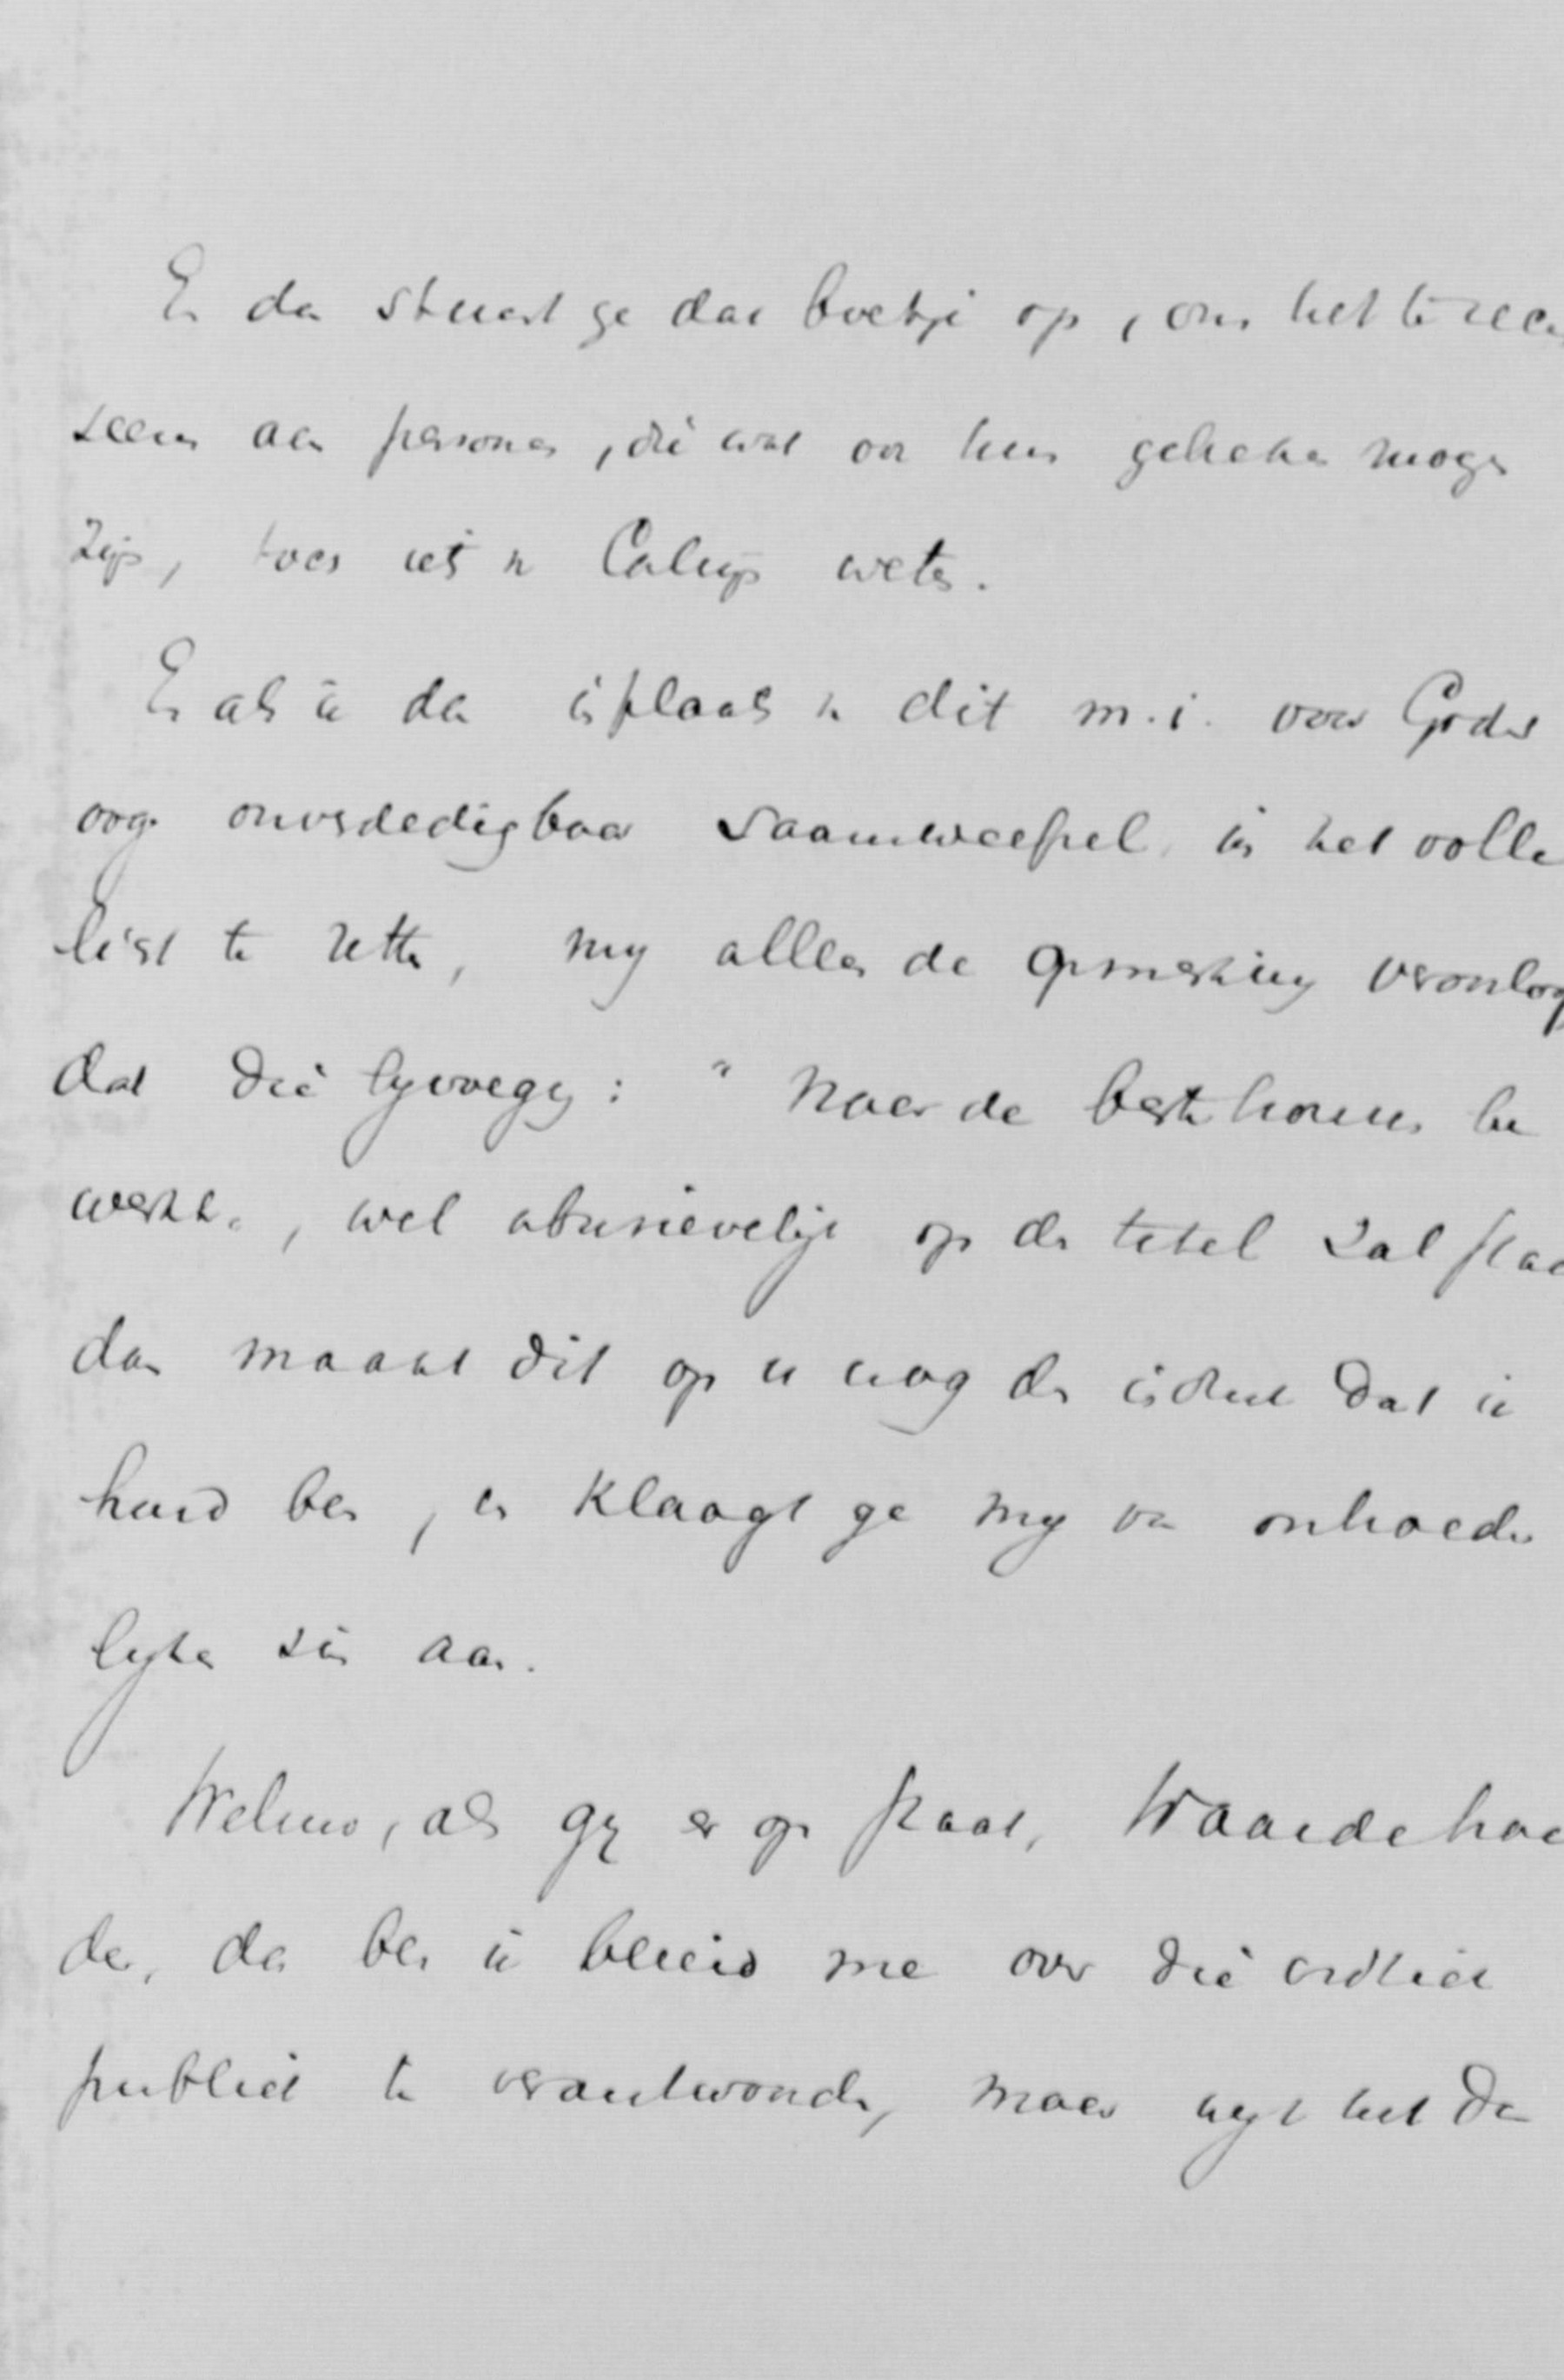 En dan stuurt ge dat boekje op, om het te recen
seeren aan personen, die wat van hun geheeten mogen
zijn, toch iets v. Calvijn weten.
En als ik dan in plaats v. dit m.i. voor Gods
oog onverdedigbaar saamweefsel in het volle
licht te zetten, mij alleen de opmerking veroorloof
dat die bijvoeging: " Naar de beste bronnen be
werkt", wel abusievelijk op den titel zal staan
dan maakt dit op u nog den indruk dat ik
hard ben, en klaagt ge mij van onbroeder
lijken zin aan.
Welnu, als gij er op staat, Waarde broe
der, dan ben ik bereid me over die critiek
publiek te verantwoorden, maar wijt het dan